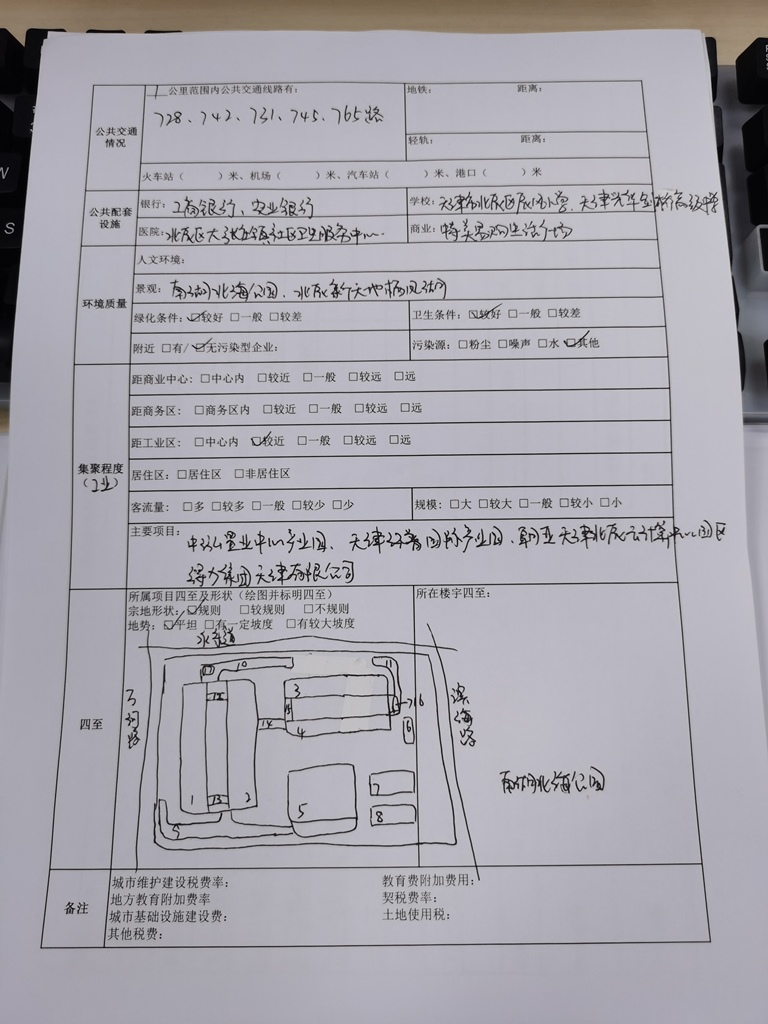 公共交通情况
1 公里范围内公共交通线路有:
728、742、731、745、765路
地铁: 距离:
轻轨: 距离:
火车站( )米、机场( )米、汽车站( )米、港口( )米
公共配套设施
银行: 工商银行、农业银行
学校: 天津市北辰区辰昌小学、天津光华剑桥高级中学
医院: 北辰区大张庄镇社区卫生服务中心
商业: 特美易购生活广场
环境质量
人文环境:
景观: 南湖北海公园、北辰新天地
绿化条件: ☑较好 □一般 □较差
卫生条件: ☑较好 □一般 □较差
附近 □有/☑无污染型企业:
污染源: □粉尘 □噪声 □水 ☑其他
集聚程度
(工业)
距商业中心: □中心内 □较近 □一般 □较远 □远
距商务区: □商务区内 □较近 □一般 □较远 □远
距工业区: □中心内 ☑较近 □一般 □较远 □远
居住区: □居住区 □非居住区
客流量: □多 □较多 □一般 □较少 □少
规模: □大 □较大 □一般 □较小 □小
主要项目: 中弘置业中心产业园、天津 国际产业园、 天津北辰云计算中心园区
得力集团天津有限公司
四至
所属项目四至及形状(绘图并标明四至)
宗地形状: ☑规则 □较规则 □不规则
地势: ☑平坦 □有一定坡度 □有较大坡度
所在楼宇四至:
永泰道
10
11
12
3
16
14
4
6
滨海路
7
1
13
2
5
8
9
南湖北海公园
备注
城市维护建设税费率:
教育费附加费用:
地方教育附加费率
契税费率:
城市基础设施建设费:
土地使用税:
其他税费: